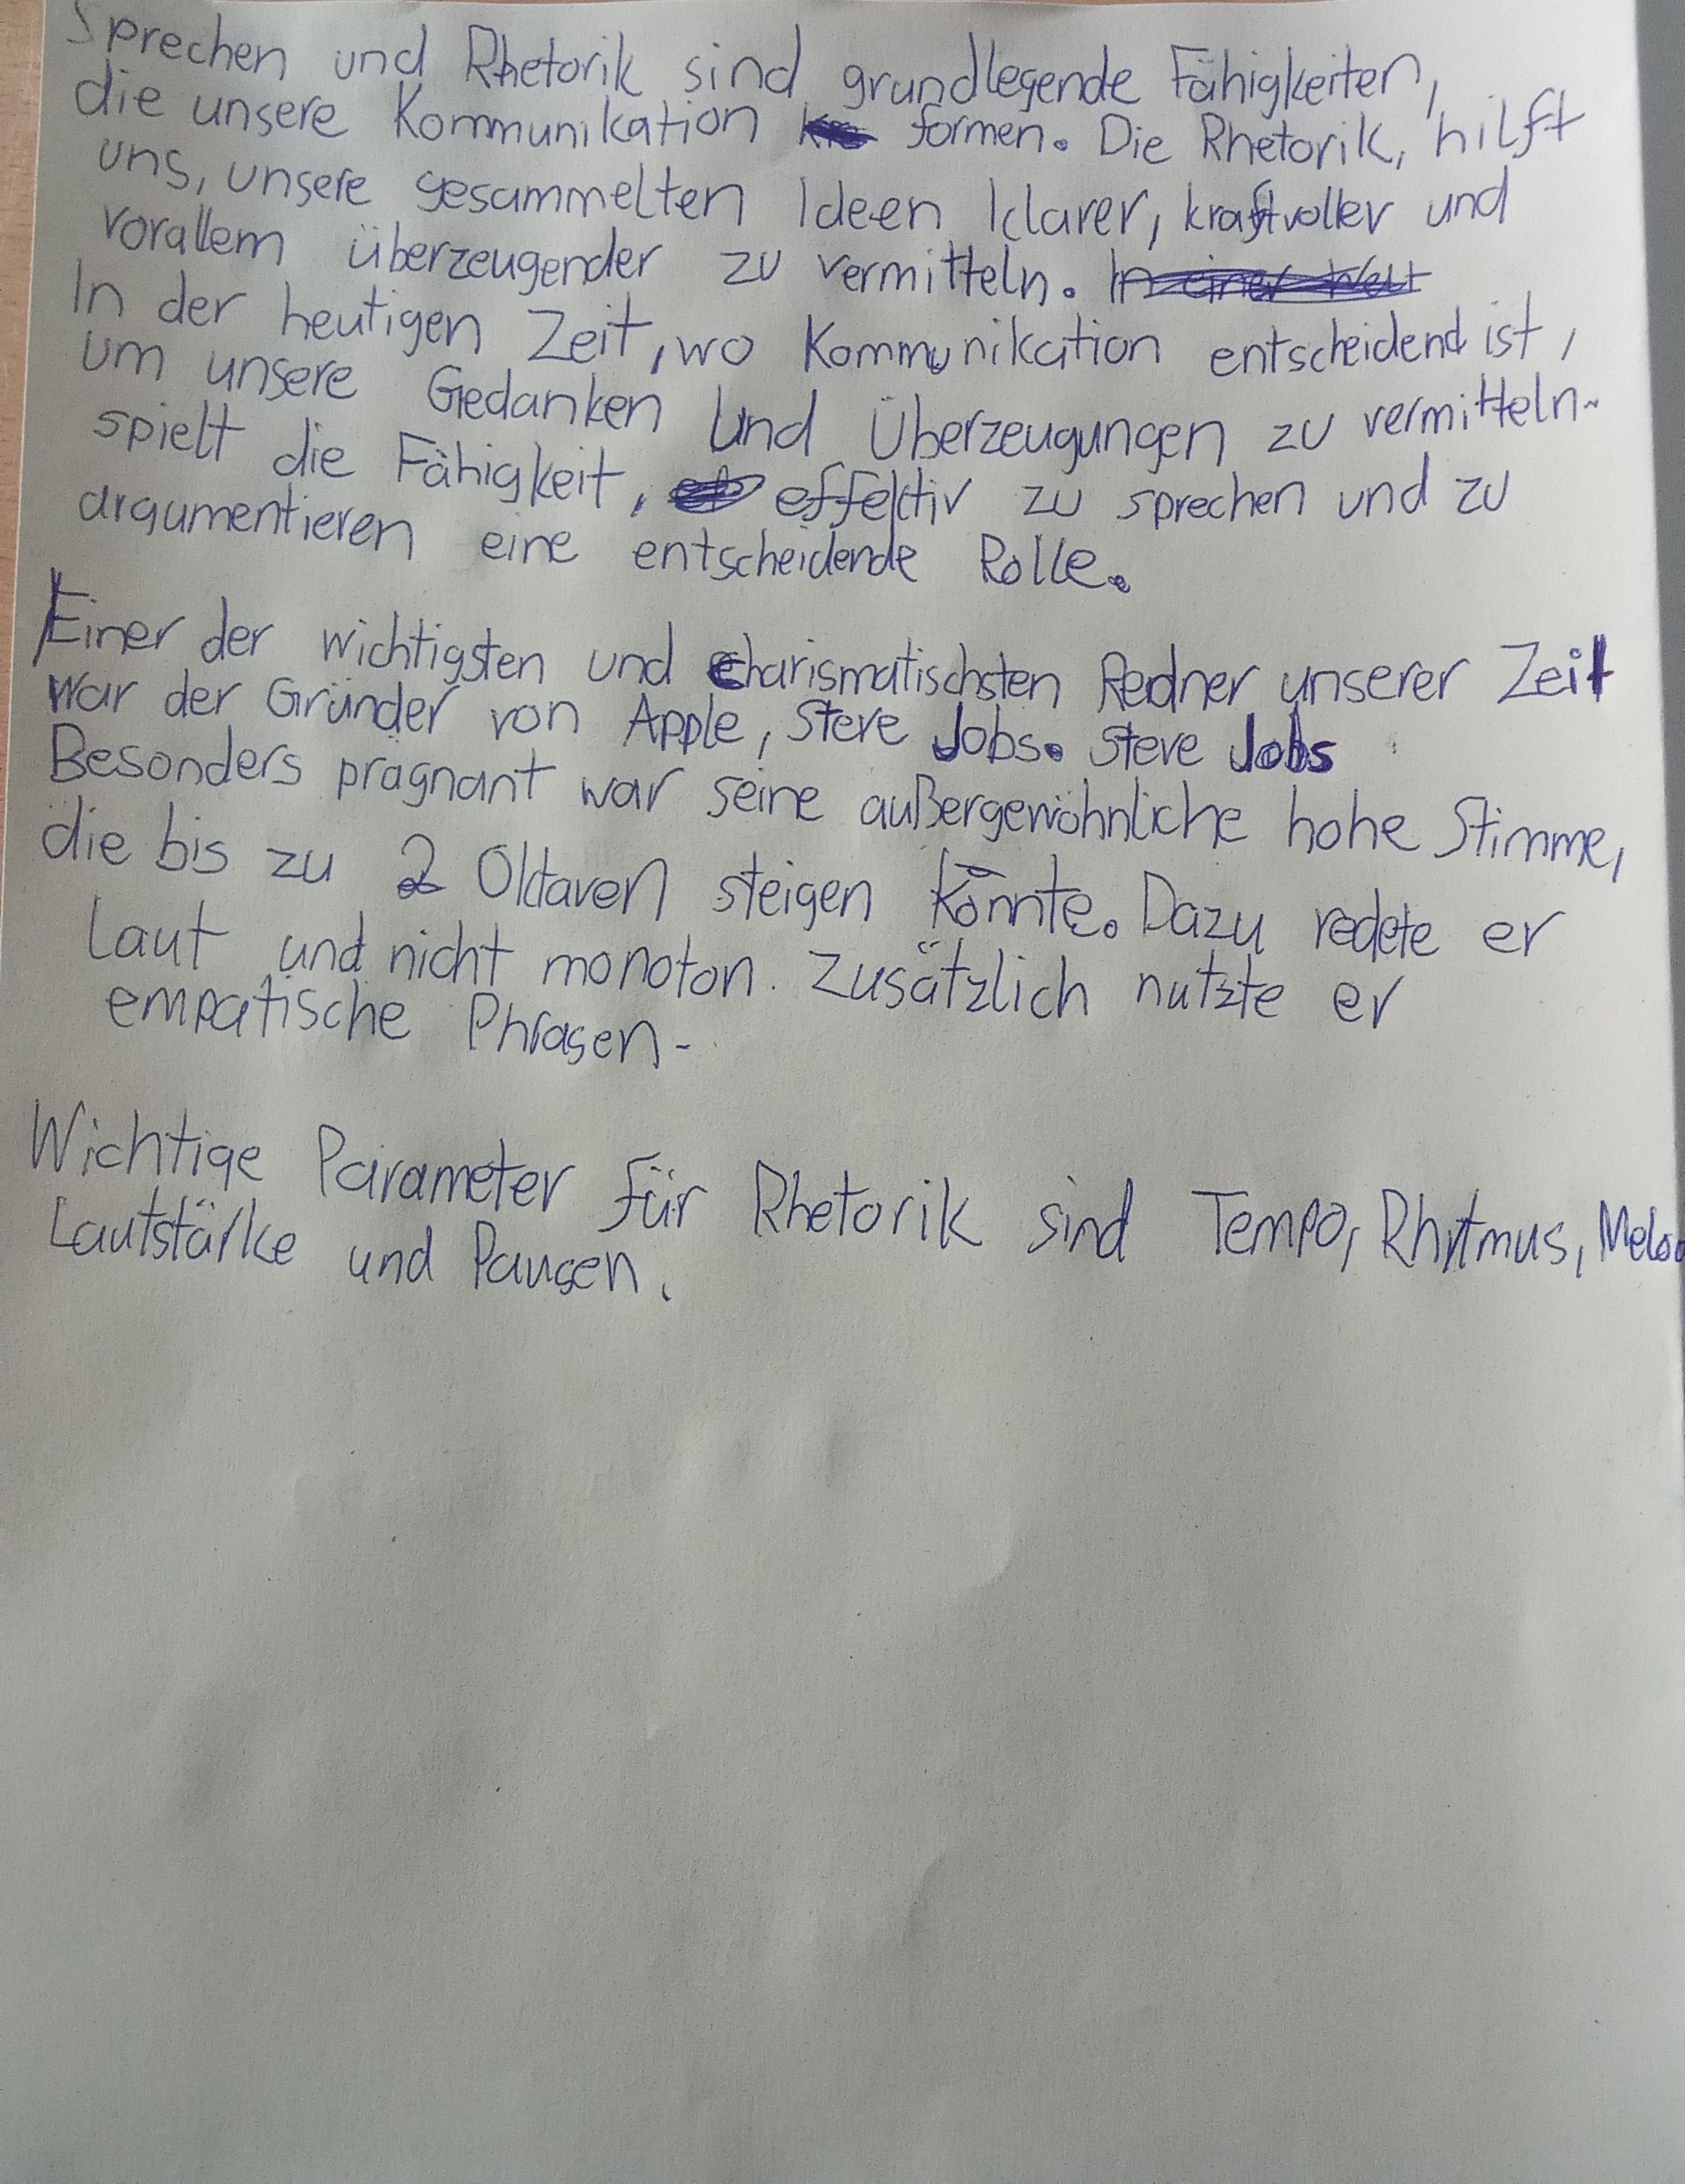 Sprechen und Rhetorik sind grundlegende Fähigkeiten,
die unsere Kommunikation formen. Die Rhetorik, hilft
uns, unsere gesammelten Ideen klarer, kraftvoller und
vorallem überzeugender zu vermitteln. In einer Welt
In der heutigen Zeit, wo Kommunikation entscheidend ist,
um unsere Gedanken und Überzeugungen zu vermitteln
spielt die Fähigkeit, effektiv zu sprechen und zu
argumentieren eine entscheidende Rolle.
Einer der wichtigsten und charismatischsten Redner unserer Zeit
war der Gründer von Apple, Steve Jobs. Steve Jobs
Besonders prägnant war seine außergewöhnliche hohe Stimme,
die bis zu 2 Oktaven steigen konnte. Dazu redete er
Laut und nicht monoton. Zusätzlich nutzte er
empatische Phrasen-
Wichtige Parameter für Rhetorik sind Tempo, Rhytmus,
Lautstärke und Pausen.